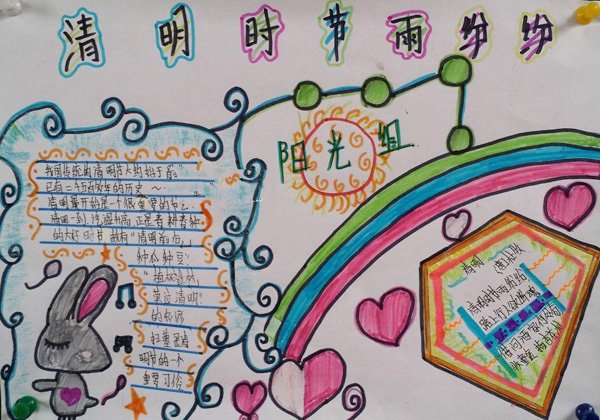 清明时节雨纷纷
阳光组
我国传统的清明节大约始于周
已有二千五百多年的历史
清明最开始是一个很重要的节
清明一到,气温升高,正是春耕春种
的大好时节,故有"清明前后,
种瓜种豆"
"植树造林,
莫过清明"
的农谚
扫墓是清
明节的一个
重要习俗
清明
清明时节雨纷纷
路上行人欲断魂
借问酒家何处有
牧童遥指杏花村